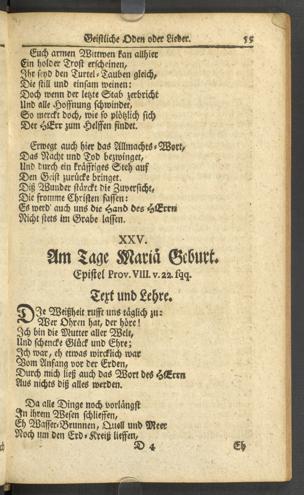 Geistliche Oden oder Lieder. 55
Euch armen Wittwen kan allhier
Ein holder Trost erscheinen,
Ihr seyd den Turtel-Tauben gleich,
Die still und einsam weinen:
Doch wenn der letzte Stab zerbricht
Und alle Hoffnung schwindet,
So merckt doch, wie so plötzlich sich
Der HErr zum Helffen findet.
Erwegt auch hier das Allmachts-Wort,
Das Nacht und Tod bezwinget,
Und durch ein kräfftiges Steh auf
Den Geist zurücke bringet.
Diß Wunder stärckt die Zuversicht,
Die fromme Christen fassen:
Es werd auch uns die Hand des HErrn
Nicht stets im Grabe lassen.
XXV.
Am Tage Mariä Geburt.
Epistel Prov. VIII. v. 22. sqq.
Text und Lehre.
DIe Weißheit rufft uns täglich zu:
Wer Ohren hat, der höre!
Ich bin die Mutter aller Welt,
Und schencke Glück und Ehre;
Ich war, eh etwas wircklich war
Vom Anfang vor der Erden,
Durch mich ließ auch das Wort des HErrn
Aus nichts diß alles werden.
Da alle Dinge noch vorlängst
In ihrem Wesen schlieffen,
Eh Wasser-Brunnen, Quell und Meer
Noch um den Erd-Kreiß lieffen,
D 4 Eh